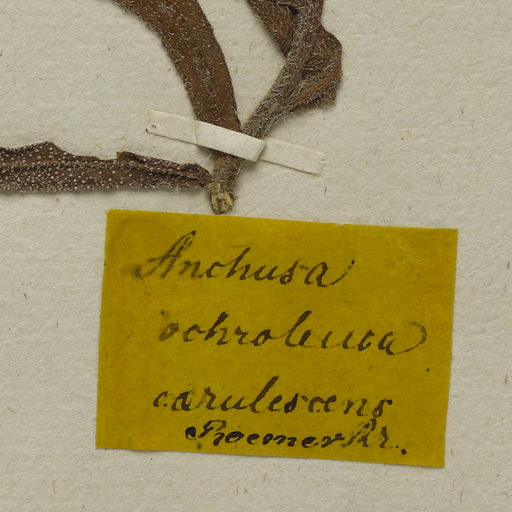 Anchusa
ochroleuca
cærulescens
Roemer